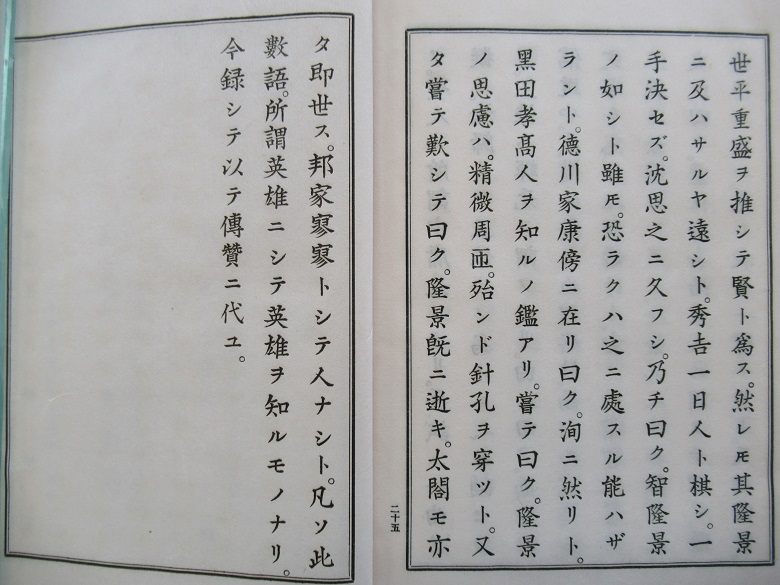 世平重盛ヲ推シテ賢ト爲ス。然レ𪜈其隆景
ニ及ハサルヤ遠シト。秀吉一日人ト棋シ。一
手決セズ。沈思之ニ久フシ。乃チ曰ク。智隆景
ノ如シト雖𪜈。恐ラクハ之ニ處スル能ハザ
ラント。德川家康傍ニ在リ曰ク。洵ニ然リト。
黑田孝髙人ヲ知ルノ鑑アリ。嘗テ曰ク。隆景
ノ思慮ハ。精微周匝。殆ンド針孔ヲ穿ツト。又
タ嘗テ歎シテ曰ク。隆景旣ニ逝キ。太閤モ亦
二十五
タ即世ス。邦家寥寥トシテ人ナシト。凡ソ此
數語。所謂英雄ニシテ英雄ヲ知ルモノナリ。
今録シテ以テ傳贊ニ代ユ。